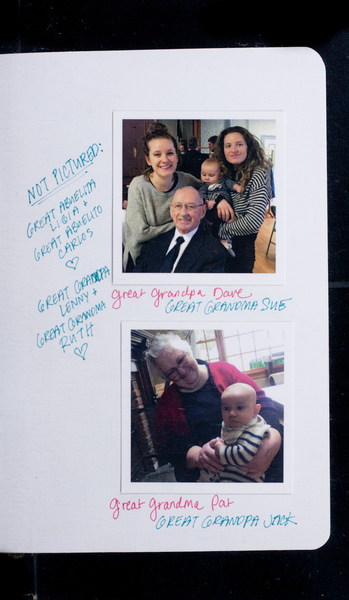 NOT PICTURED:
GREAT ABUELITA
LIGIA +
GREAT ABUELITO
CARLOS
GREAT GRANDPA
LENNY +
GREAT GRANDMA
RUTH
great grandpa Dave
GREAT GRANDMA SUE
great grandma Pat
GREAT GRANDPA JACK